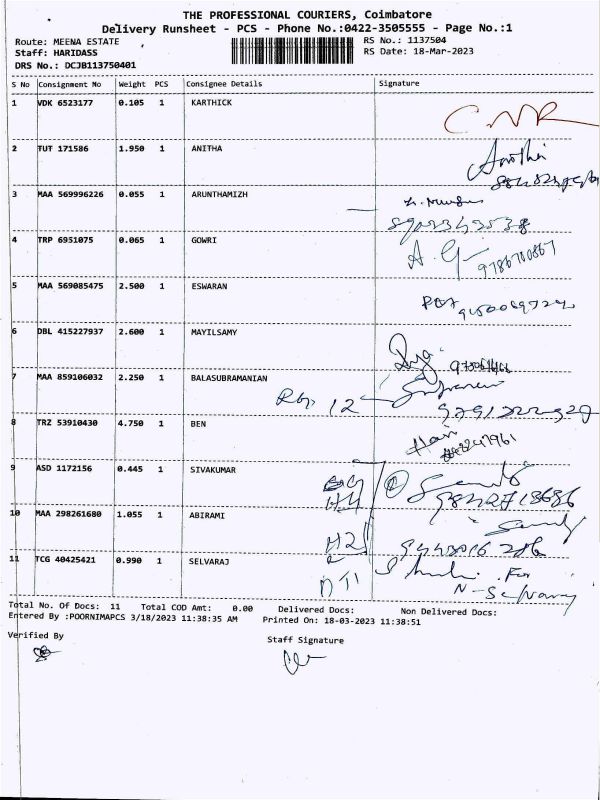 THE PROFESSIONAL COURIERS, Coimbatore
Delivery Runsheet - PCS - Phone No.:0422-3505555 - Page No.:1
Route: MEENA ESTATE
Staff: HARIDASS
DRS No.: DCJB113750401
RS No.: 1137504
RS Date: 18-Mar-2023
S No Consignment No Weight PCS Consignee Details Signature
1 VDK 6523177 0.105 1 KARTHICK
2 TUT 171586 1.950 1 ANITHA
3 MAA 569996226 0.055 1 ARUNTHAMIZH
4 TRP 6951075 0.065 1 GOWRI
9786780867
5 MAA 569085475 2.500 1 ESWARAN
6 DBL 415227937 2.600 1 MAYILSAMY
7 MAA 859106032 2.250 1 BALASUBRAMANIAN
12
8 TRZ 53910430 4.750 1 BEN
9 ASD 1172156 0.445 1 SIVAKUMAR
10 MAA 298261680 1.055 1 ABIRAMI
11 TCG 40425421 0.990 1 SELVARAJ
For
Total No. Of Docs: 11 Total COD Amt: 0.00 Delivered Docs: Non Delivered Docs:
Entered By :POORNIMAPCS 3/18/2023 11:38:35 AM Printed On: 18-03-2023 11:38:51
Verified By
Staff Signature